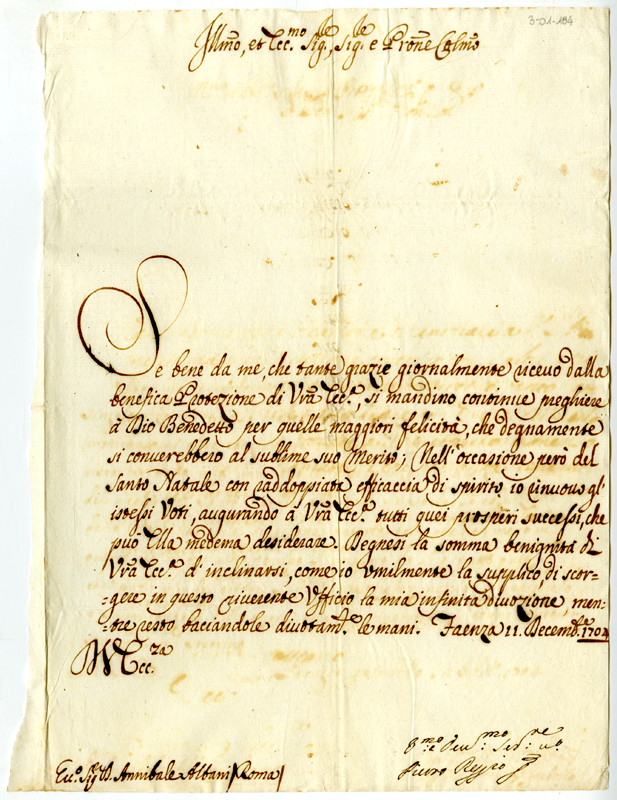 3-01-184
Illmo, et Ecc.mo Sig.re, Sig.re e Prone Colmo
Se bene da me, che tante grazie giornalmente ricevo dalla
benefica Protezione di Vrã Ecc.a, si mandino continue preghiere
à Dio Benedetto per quelle maggiori felicità, che degnamente
si converebbero al sublime suo Merito; Nell'occasione però del
Santo Natale con raddoppiata efficaccia di spirito io rinuovo gl'
istessi Voti, augurando à Vrã Ecc.a tutti quei prosperi successi, che
può Ella medema desiderare. Degnesi la somma benignità di
Vrã Ecc.a d'inclinarsi, come io vmilmente la supplico, di scor-
-gere in questo riverente Vfficio la mia infinita divozione, men-
-tre resto baciandole divotam.e le mani. Faenza 11. Decemb.e 1704
Ecc.za
Ecc.o Sig.e D. Annibale Albani Roma
Pietro